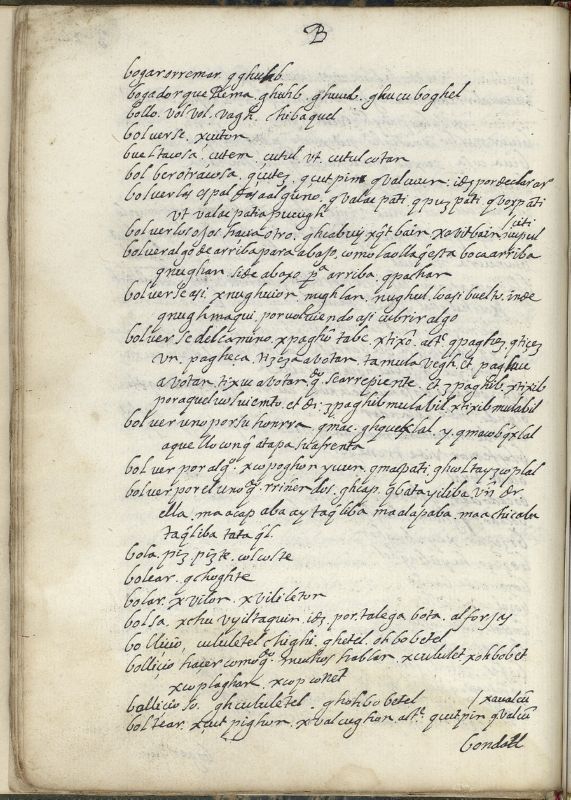 B
bogar o rremar. q ghulib
bogador que Rema. ghulib. ghuuel. ghucu boghel
bollo. vol vol. vagh. chibaquel
boluerse. xcuton
bueltacosa. cutem. cutul vt. cutul cotan
boluer otra cosa. qcutez. qcutpin qualcuun. idz por declarar
boluer los espaldos a alguno. qualac pati. qpuz piti. qvorpati
vt valac patia pucugh
boluer los ojos hacia otro. ghcabuy xqt bain xavitbain
boluer algo de arriba para abajo. como la olla questa boca arriba
qnughan. si de abaxo pa. arriba. qpachan
boluerse asi. xnughuion. nughlan. nughul. lo asi buelto. inde
qnughmaqui. por voluiendo asi cubrir algo
boluerse del camino. xpaghon tabe. xtixon. alt. qpaghez. qtizez
vn. pagheca. tizeza votan. tamula vegh. et paghue
a votan tixue a votan. qdo. se arrepiente. et z paghib. xtixib
por aquel voluimto. et di. z paghib mulabil. xtixib mulabil
boluer uno por su honrra. qmac. ghquexlal. y. qmacobqxlal
aquello conq. atapa su afrenta
boluer por algo. xcopoghon yuun. qmacpati. ghcoltayzcoplal
boluer por el uno qdo. rriñen dos. ghcap. qbatayiliba. vn dr
ella. maacap aba ay taqliba. maalapaba. maachicaba
taqliba tata ql.
bola. piz pizte. colcolte
bolear. qchoghte
bolar. xvilon. xvileleton
bolsa. xchu vyiltaquin. idz. por. talega bota. alforjas
bollicio. cululetel chighi. ghetel. oh bobetel
bollicio hacer como qdo. muchos hablan. xcululet xohbobet
xcoplaghan. xcop cotet
bollicioso. ghcululetel. ghohbobetel
boltear. xcutpighon. xvalcughon. alt. qcutpin qvalcu
bondad